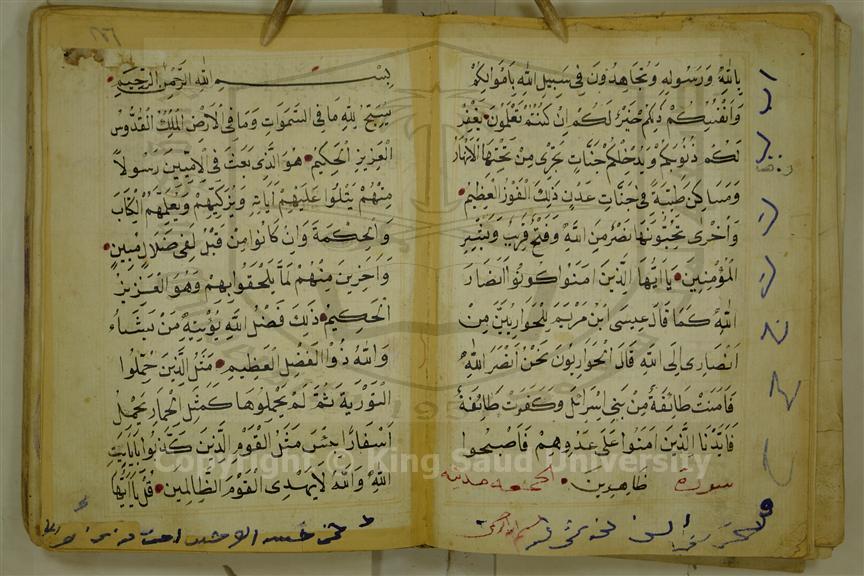 بالله ورسوله وتجاهدون في سبيل الله باموالكم
وانفسكم ذلكم خير لكم ان كنتم تعلمون يغفر
لكم ذنوبكم ويدخلكم جنات تجري من تحتها الانهار
ومساكن طيبة في جنات عدن ذلك الفوز العظيم
واخرى تحبونها نصر من الله وفتح قريب وبشر
المؤمنين يا ايها الذين امنوا كونوا انصار
الله كما قال عيسى ابن مريم للحواريين من
انصاري الى الله قال الحواريون نحن انصار الله
فامنت طائفة من بني اسرائيل وكفرت طائفة
فايدنا الذين امنوا على عدوهم فاصبحوا
ظاهرين سورة الجمعة مدنية
بسم الله الرحمن الرحيم
يسبح لله ما في السموات وما في الارض الملك القدوس
العزيز الحكيم هو الذي بعث في الاميين رسولا
منهم يتلوا عليهم اياته ويزكيهم ويعلمهم الكتاب
والحكمة وان كانوا من قبل لفي ضلال مبين
واخرين منهم لما يلحقوا بهم وهو العزيز
الحكيم ذلك فضل الله يؤتيه من يشاء
والله ذو الفضل العظيم مثل الذين حملوا
التورية ثم لم يحملوها كمثل الحمار يحمل
اسفارا بئس مثل القوم الذين كذبوا بايات
الله والله لا يهدي القوم الظالمين قل يا ايها
Copyright © King Saud University